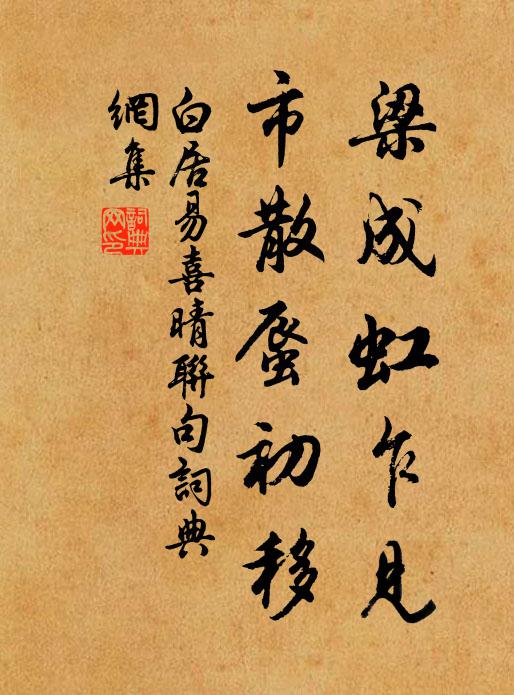 梁成虹乍見
市散蜃初移
白居易喜晴聯句詞典
網集
詞典
网印